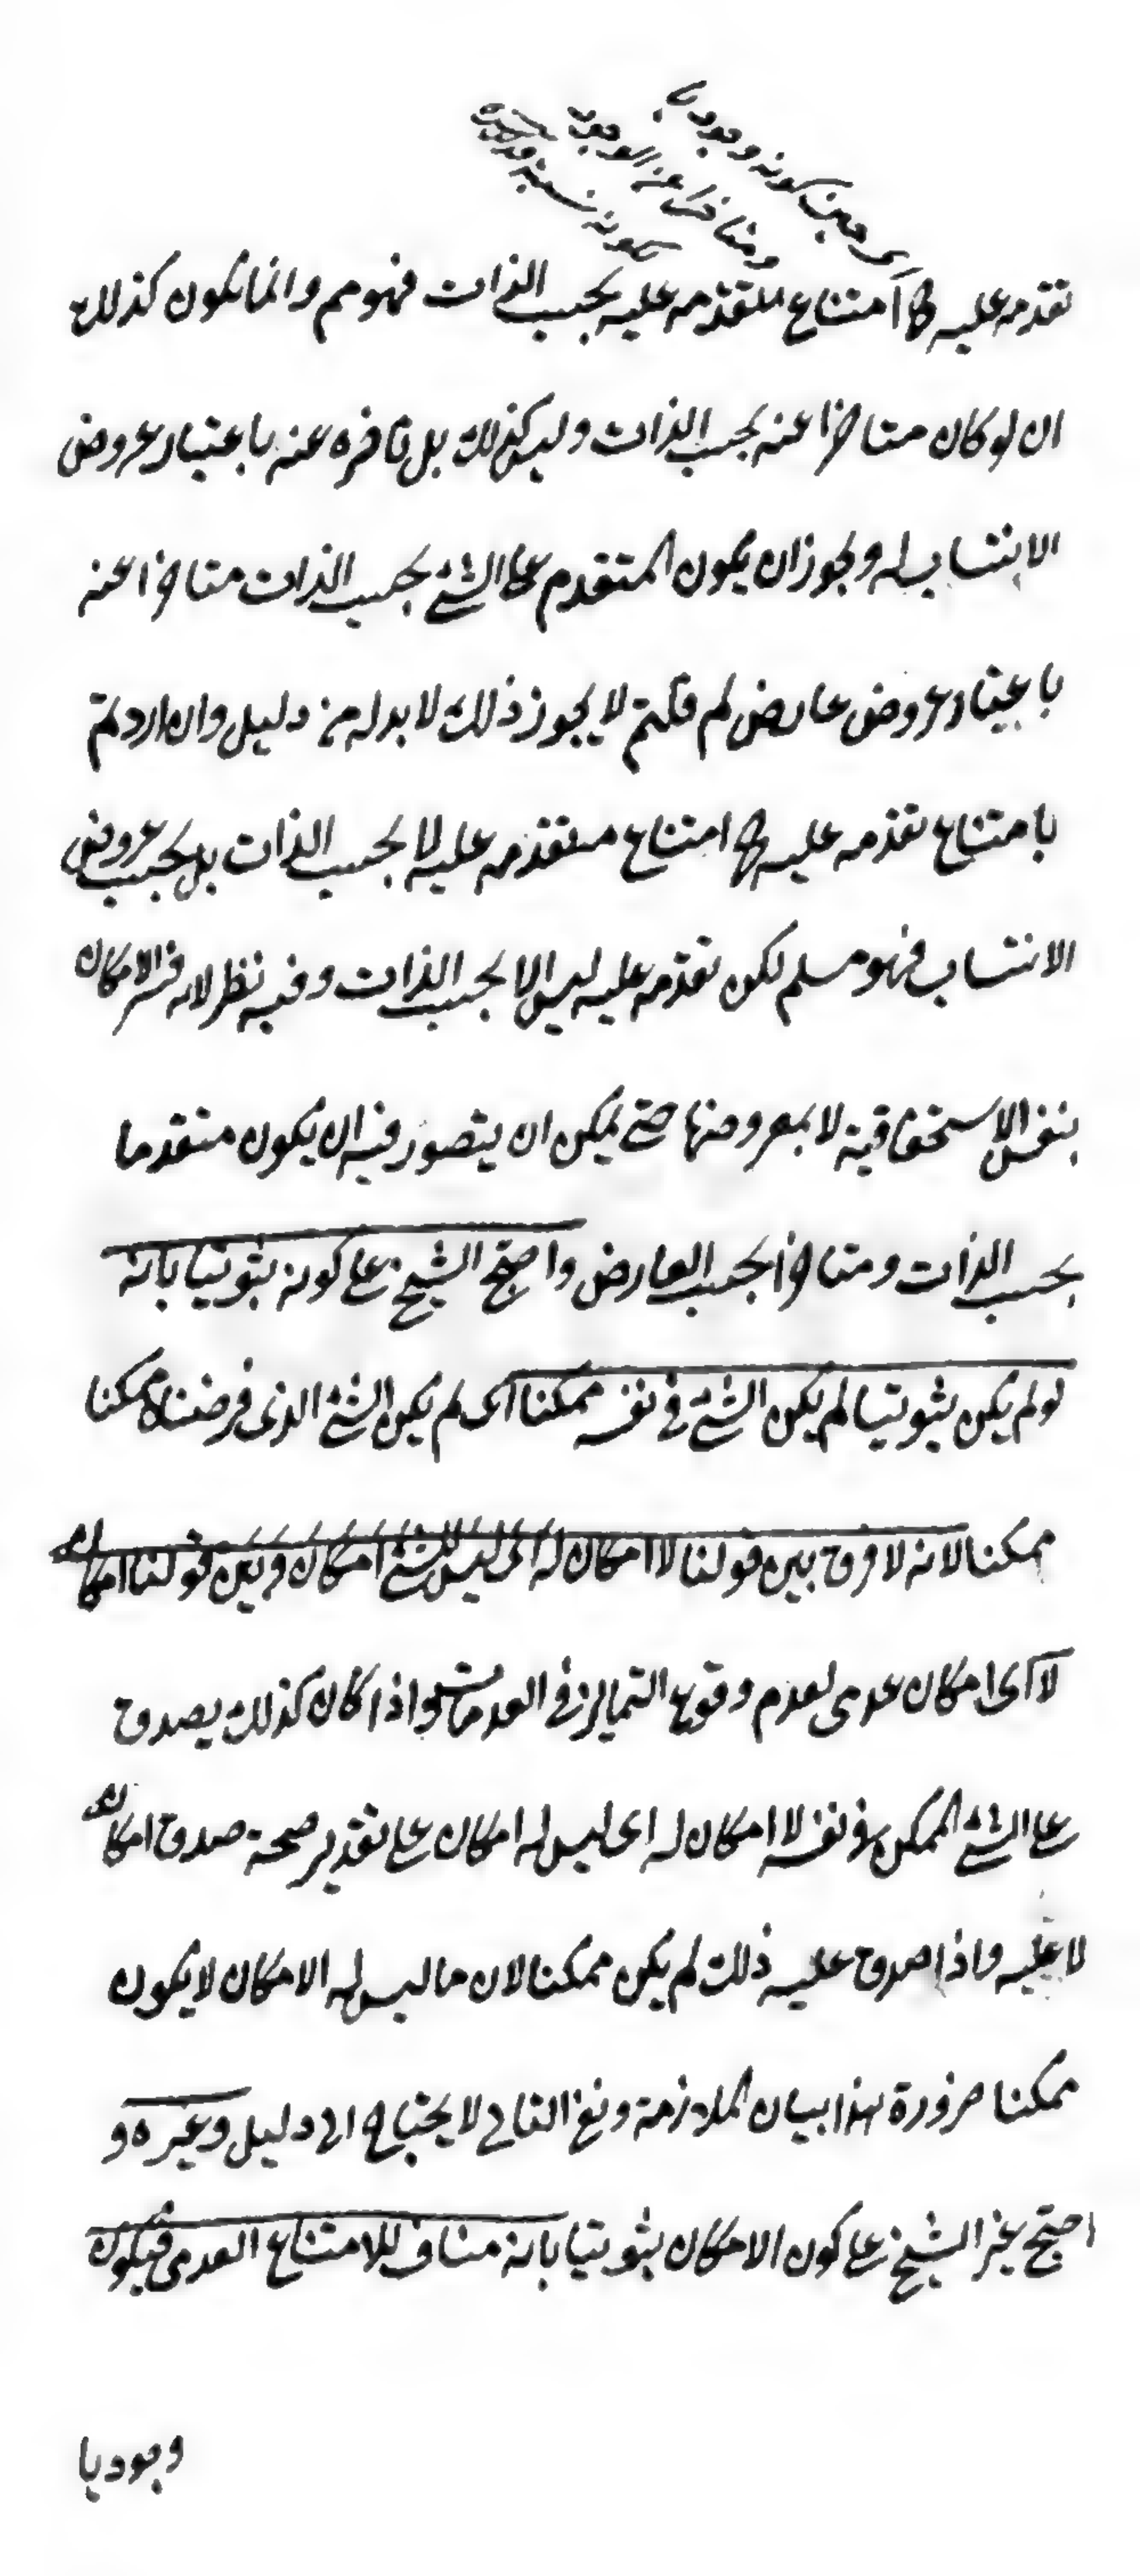 اى حين كونه وجوديا
ومتاخرا عن الوجود
لكونه نسبة
تقدمه عليه اى امتناع تقدمه عليه بحسب الذات فهو مم وانما يكون كذلك
ان لو كان متاخرا عنه بحسب الذات وليس كذلك بل تاخره عنه باعتبار عروض
الانتساب له ويجوز ان يكون المتقدم على الشئ بحسب الذات متاخرا عنه
باعتبار عروض عارض لم قلتم لا يجوز ذلك لا بد له من دليل وان اردتم
بامتناع تقدمه عليه امتناع تقدمه عليه لا بحسب الذات بل بحسب عروض
الانتساب فهو مسلم لكن تقدمه عليه ليس الا بحسب الذات وفيه نظر لانه فسر الامكان
بنفس الاستحقاقية لا بمعروضها حتى يمكن ان يتصور فيه ان يكون متقدما
بحسب الذات ومتاخرا بحسب العارض واحتج الشيخ على كونه ثبوتيا بانه
لو لم يكن ثبوتيا لم يكن الشئ فى نفسه ممكنا اى لم يكن الشئ الذى فرضناه ممكنا
ممكنا لانه لا فرق بين قولنا لا امكان له اى ليس للشئ امكان وبين قولنا امكانه
لا اى امكان عدمى لعدم وقوع التمايز فى العدمات واذا كان كذلك يصدق
على الشئ الممكن فى نفسه لا امكان له اى ليس له امكان على تقدير صحة صدق امكانه
لا عليه واذا صدق عليه ذلك لم يكن ممكنا لان ما ليس له الامكان لا يكون
ممكنا ضرورة هذا بيان الملازمة ونفى التالى لا يحتاج الى دليل وغيره و
احتج غير الشيخ على كون الامكان ثبوتيا بانه مناف للامتناع العدمى فيكون
وجوديا